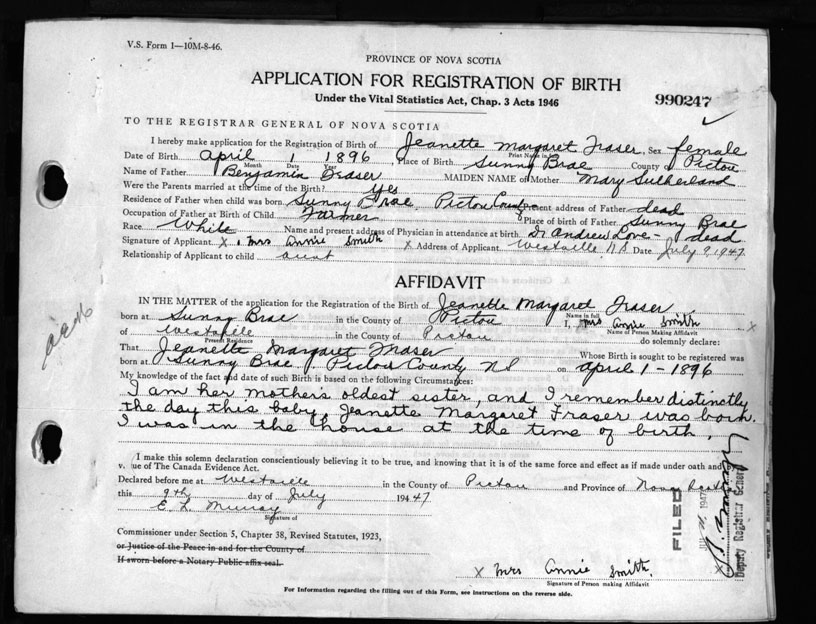 V.S. Form 1—10M-8-46.
PROVINCE OF NOVA SCOTIA
APPLICATION FOR REGISTRATION OF BIRTH
Under the Vital Statistics Act, Chap. 3 Acts 1946
990247
TO THE REGISTRAR GENERAL OF NOVA SCOTIA
I hereby make application for the Registration of Birth of Jeanette Margaret Fraser, Sex female
Print Name in full
Date of Birth April 1 1896, Place of Birth Sunny Brae County of Pictou
Month Date Year
Name of Father Benjamin Fraser MAIDEN NAME of Mother Mary Sutherland
Were the Parents married at the time of the Birth? Yes
Residence of Father when child was born Sunny Brae Pictou County Present address of Father dead
Occupation of Father at Birth of Child Farmer Place of birth of Father Sunny Brae
Race White Name and present address of Physician in attendance at birth Dr Andrew Love - dead
Signature of Applicant X Mrs Annie Smith X Address of Applicant Westville N.S Date July 9 1947
Relationship of Applicant to child aunt
AFFIDAVIT
IN THE MATTER of the application for the Registration of the Birth of Jeanette Margaret Fraser
Name in full
born at Sunny Brae in the County of Pictou I, Mrs Annie Smith X
Name of Person Making Affidavit
of Westville in the County of Pictou do solemnly declare:
Present Residence
That Jeanette Margaret Fraser Whose Birth is sought to be registered was
born at Sunny Brae Pictou County NS on April 1 - 1896
My knowledge of the fact and date of such Birth is based on the following Circumstances:
I am her mothers oldest sister, and I remember distinctly
the day this baby, Jeanette Margaret Fraser was born.
I was in the house at the time of birth.
I make this solemn declaration conscientiously believing it to be true, and knowing that it is of the same force and effect as if made under oath and by
v. ue of The Canada Evidence Act.
Declared before me at Westville in the County of Pictou and Province of Nova Scotia
this 9th day of July 194 47
E. L. Murray
Signature of
Commissioner under Section 5, Chapter 38, Revised Statutes, 1923,
or Justice of the Peace in and for the County of
If sworn before a Notary Public affix seal.
X Mrs Annie Smith. X
Signature of Person making Affidavit
For Information regarding the filling out of this Form, see instructions on the reverse side.
FILED
1947
Deputy Registrar General